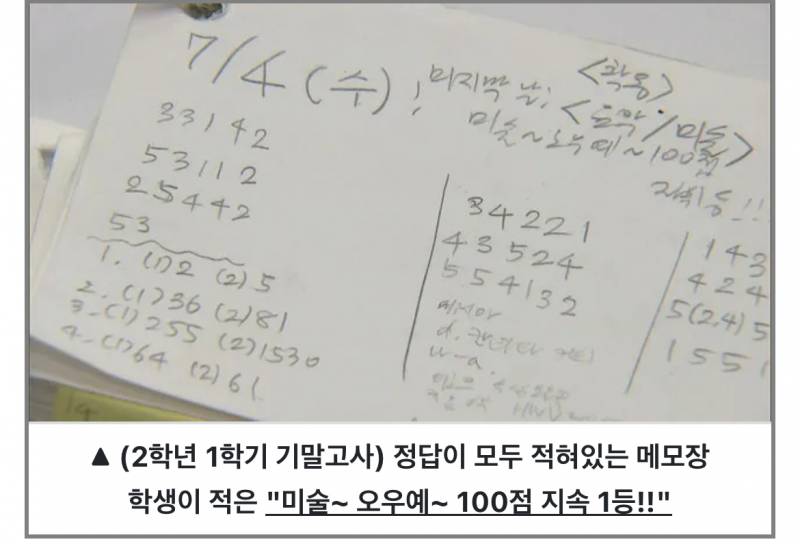 7/4 (수) ; 마지막 날;
<확통>
<독막/미술>
미술~ 오우예~ 100점
지속 1등!!
33142
53112
25442
53
1. (1)2 (2)5
2. (1)36 (2)81
3. (1)255 (2)1530
4. (1)64 (2)61
34221
43524
554132
143
424
5(2,4)5
1551
▲ (2학년 1학기 기말고사) 정답이 모두 적혀있는 메모장
학생이 적은 "미술~ 오우예~ 100점 지속 1등!!"